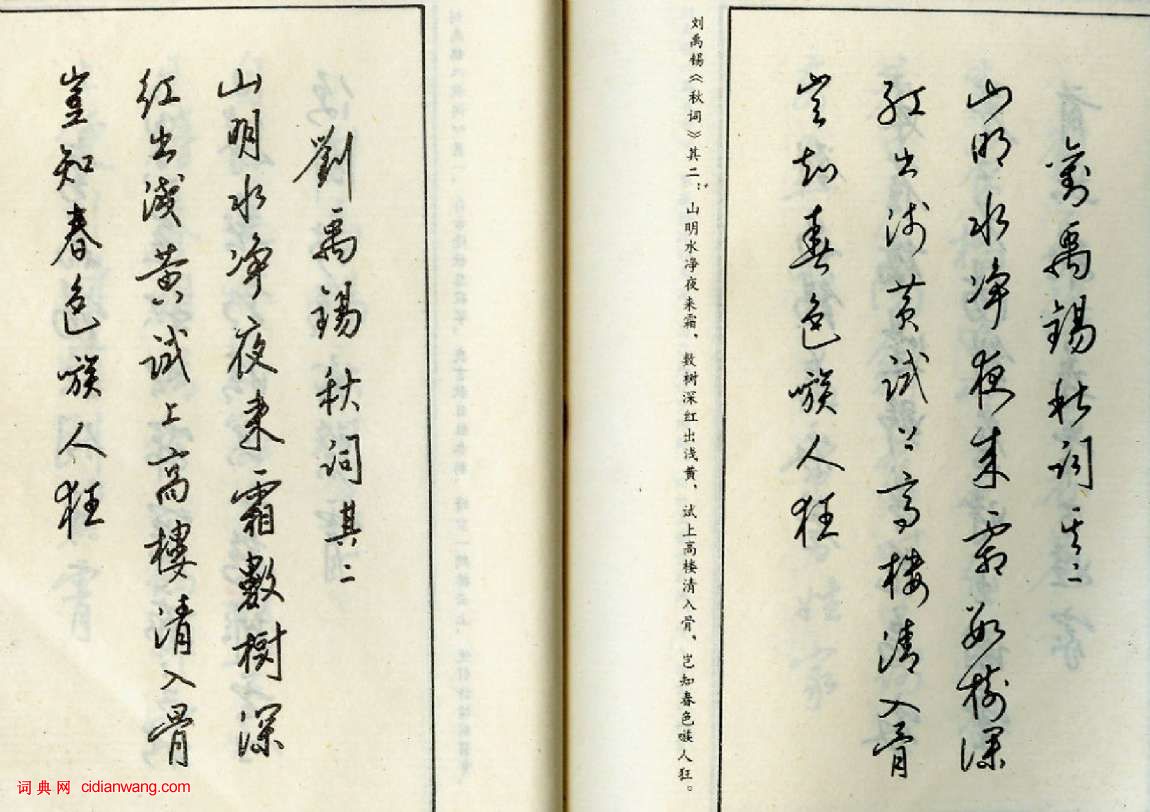 劉禹錫秋詞其二
山明水净夜来霜數樹深
紅出淺黄試上高樓清入骨
豈知春色嗾人狂
刘禹锡《秋词》其二：山明水净夜来霜，数树深红出浅黄，试上高楼清入骨，岂知春色嗾人狂。
劉禹錫秋詞其二
山明水净夜来霜數樹深
紅出淺黄試上高樓清入骨
豈知春色嗾人狂
词典网 cidianwang.com